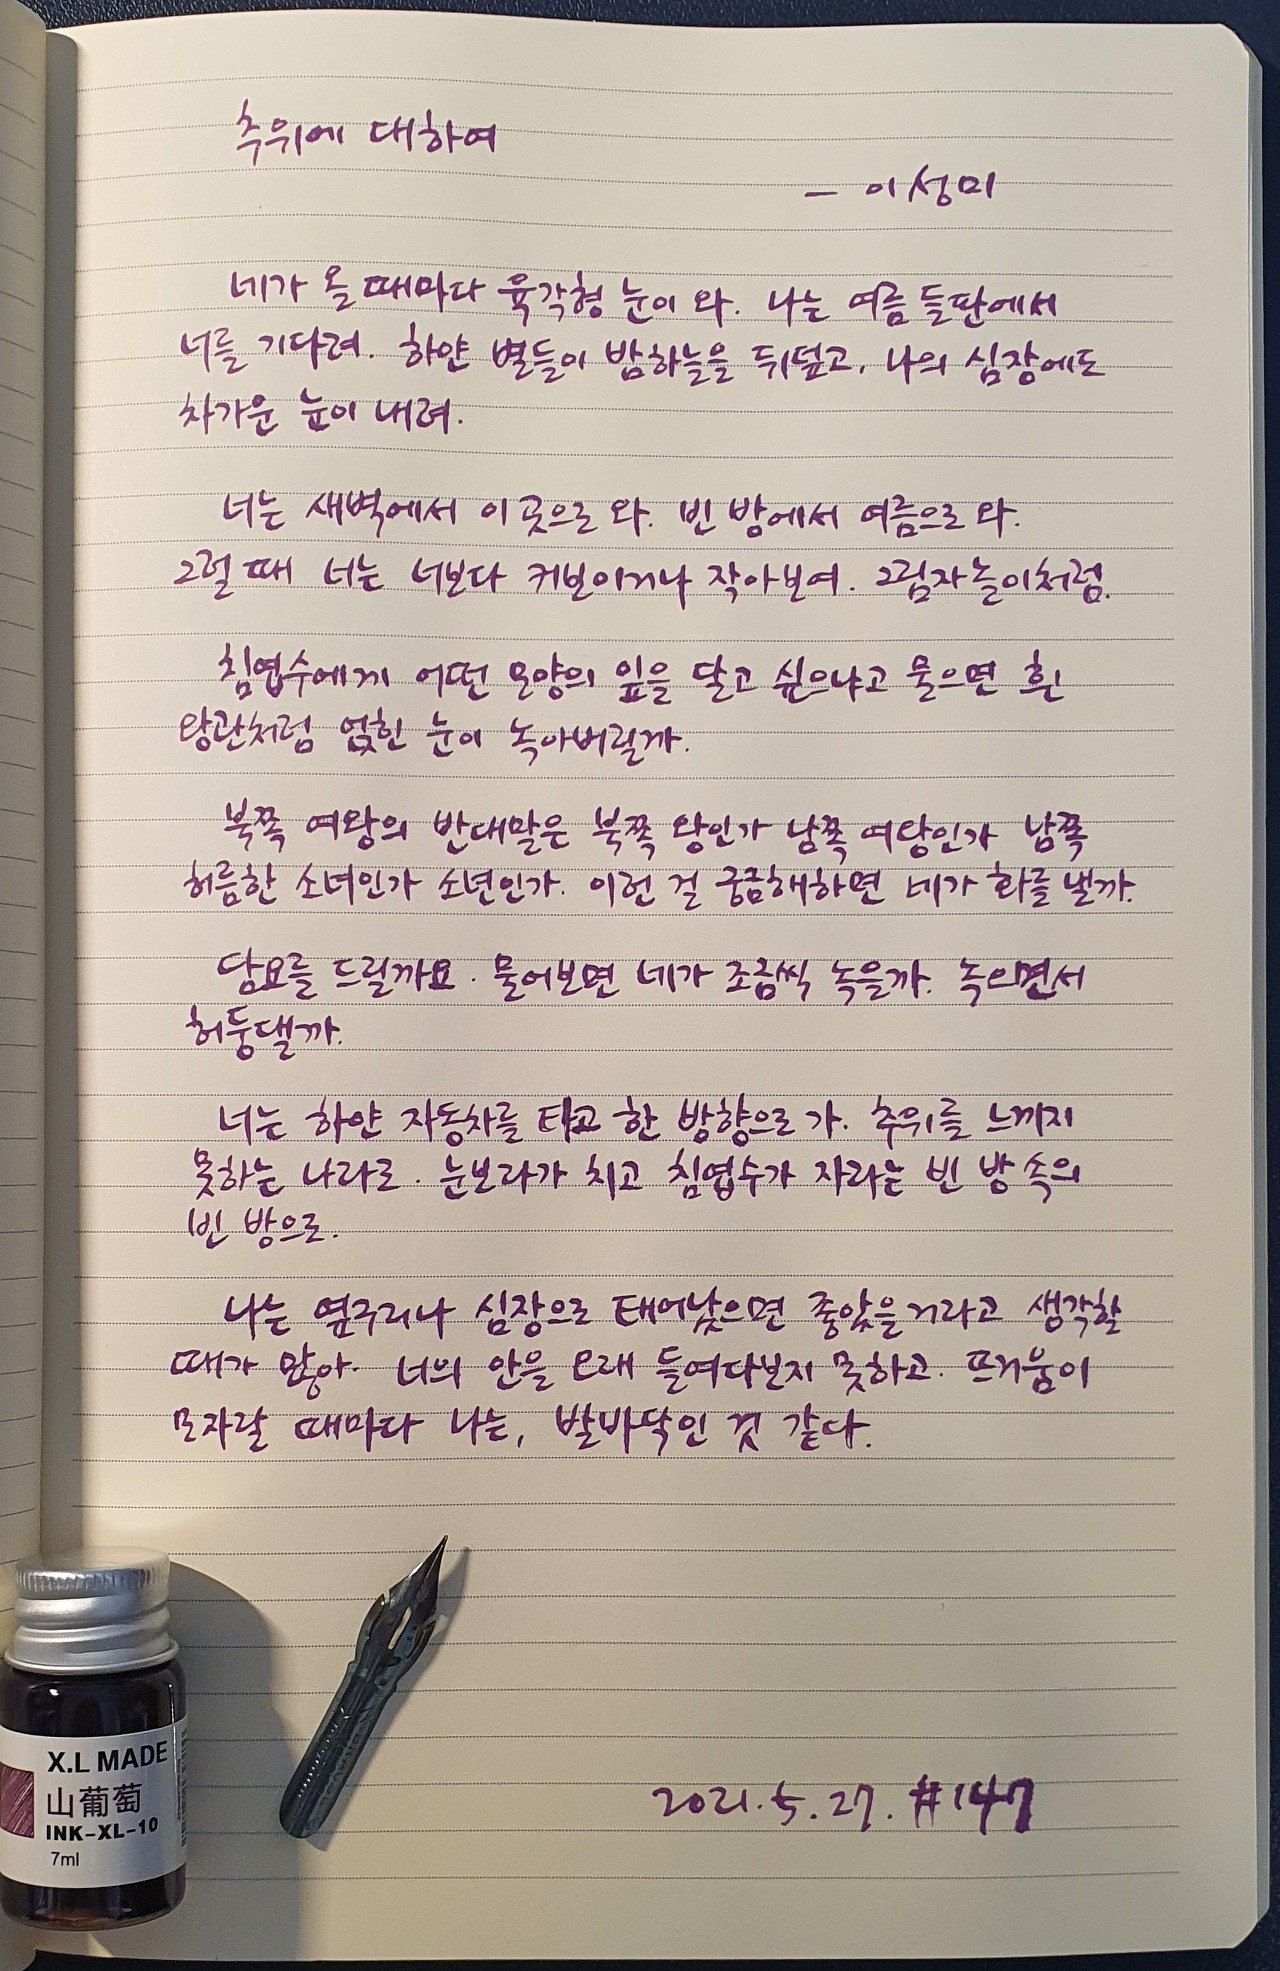 추위에 대하여
- 이성미
네가 올 때마다 육각형 눈이 와. 나는 여름 들판에서
너를 기다려. 하얀 별들이 밤하늘을 뒤덮고, 나의 심장에도
차가운 눈이 내려.
너는 새벽에서 이 곳으로 와. 빈 방에서 여름으로 와.
그럴 때 너는 너보다 커보이거나 작아보여. 그림자놀이처럼.
침엽수에게 어떤 모양의 잎을 달고 싶으냐고 물으면 흰
왕관처럼 얹힌 눈이 녹아버릴까.
북쪽 여왕의 반대말은 북쪽 왕인가 남쪽 여왕인가 남쪽
허름한 소녀인가 소년인가. 이런 걸 궁금해하면 네가 화를 낼까.
담요를 드릴까요. 물어보면 네가 조금씩 녹을까. 녹으면서
허둥댈까.
너는 하얀 자동차를 타고 한 방향으로 가. 추위를 느끼지
못하는 나라로. 눈보라가 치고 침엽수가 자라는 빈 방 속의
빈 방으로.
나는 옆구리나 심장으로 태어났으면 좋았을거라고 생각할
때가 많아. 너의 안을 오래 들여다보지 못하고. 뜨거움이
모자랄 때마다 나는, 발바닥인 것 같다.
X.L MADE
山葡萄
INK-XL-10
7ml
2021.5.27. #147